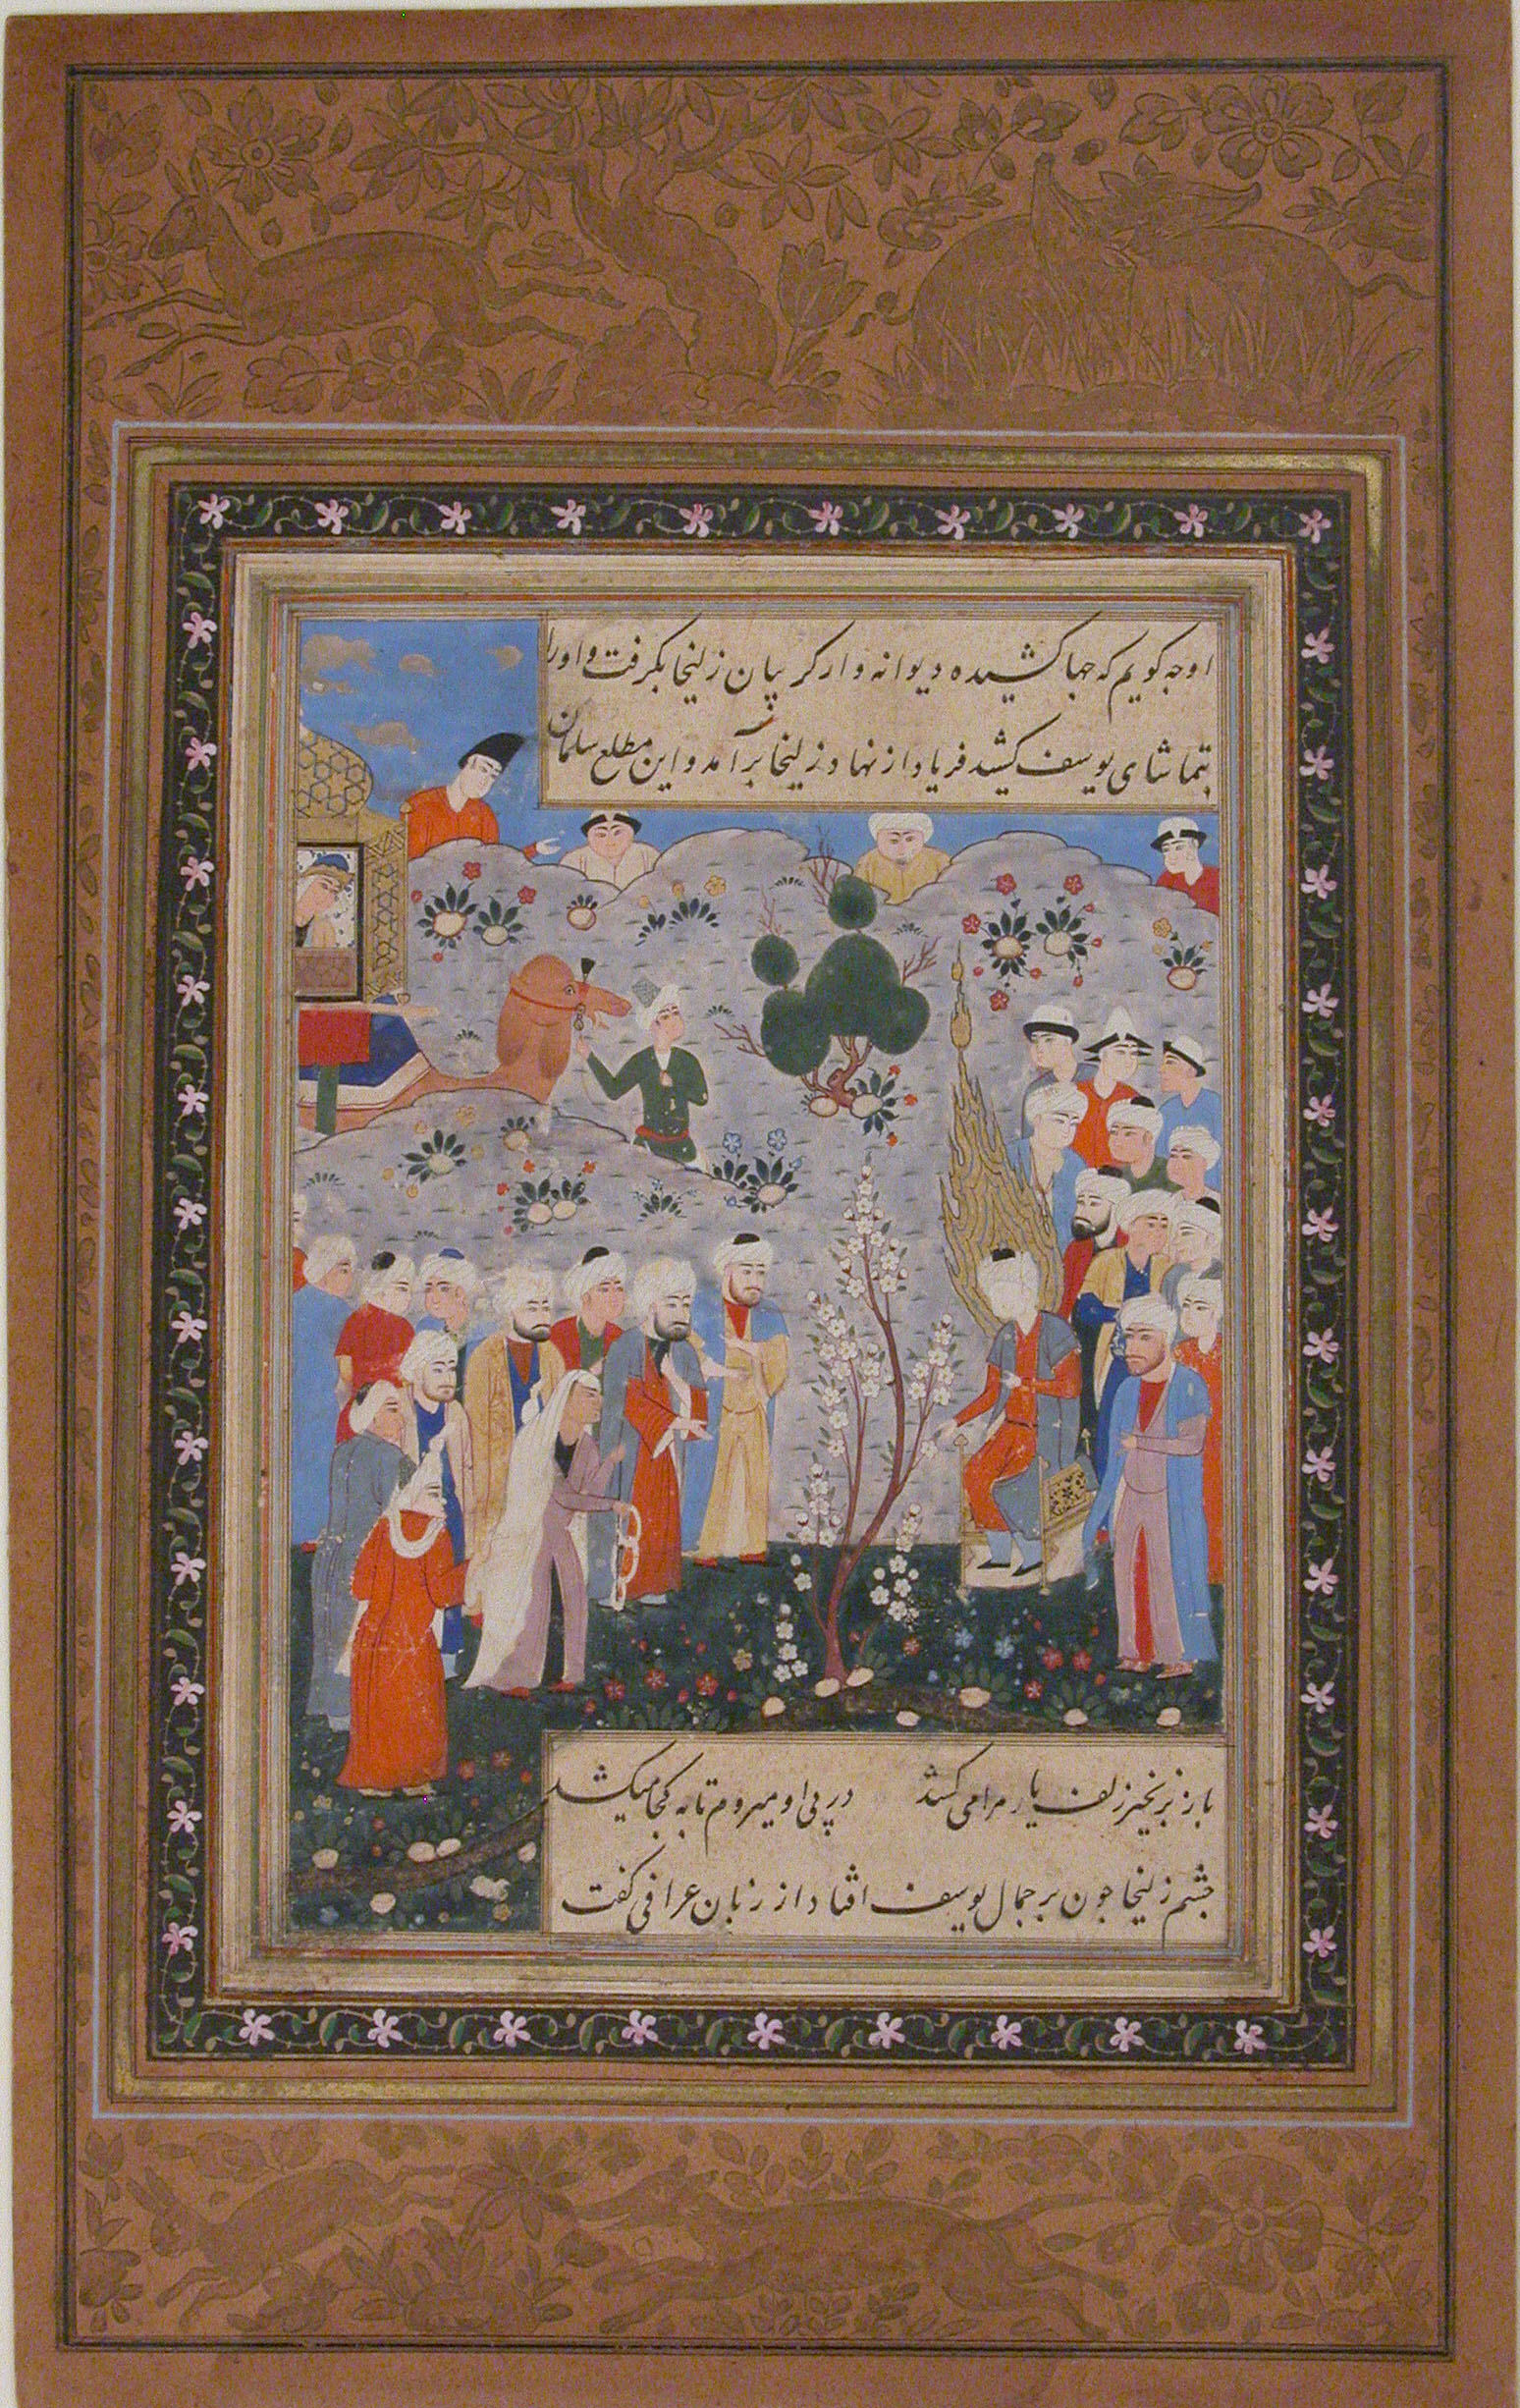 اوجه کویم که جها کشیده دیوانه وار کریبان زلیخا بکرفت و اورا
بتماشای یوسف کشید فریاد از نهاد زلیخا برآمد و این مطلع سلمان
باز زنجیر زلف یار مرا می کشد در پی او میروم تا به کجا میکشد
جشم زلیخا جون بر جمال یوسف افتاد از زبان عراقی کفت